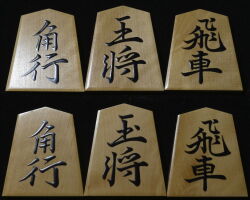 角行 王将 飛車
角行 王将 飛車